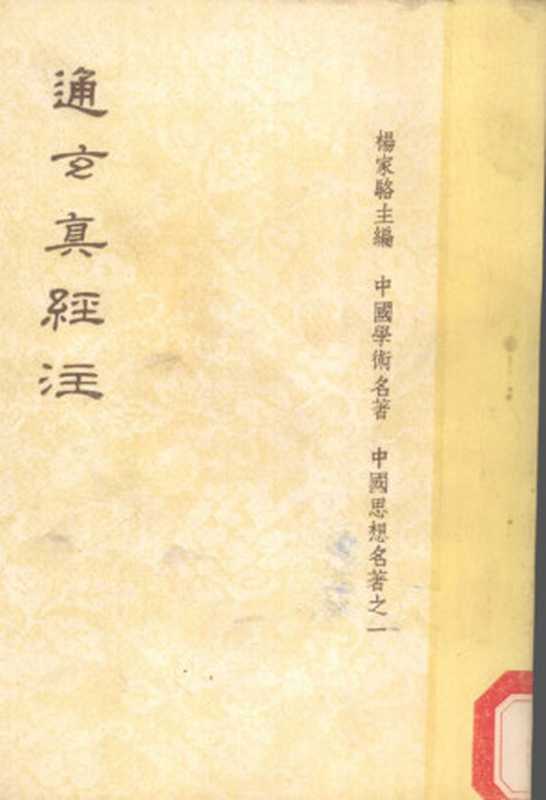 楊家駱主編 中國學術名著 中國思想名著之一
通玄真經注